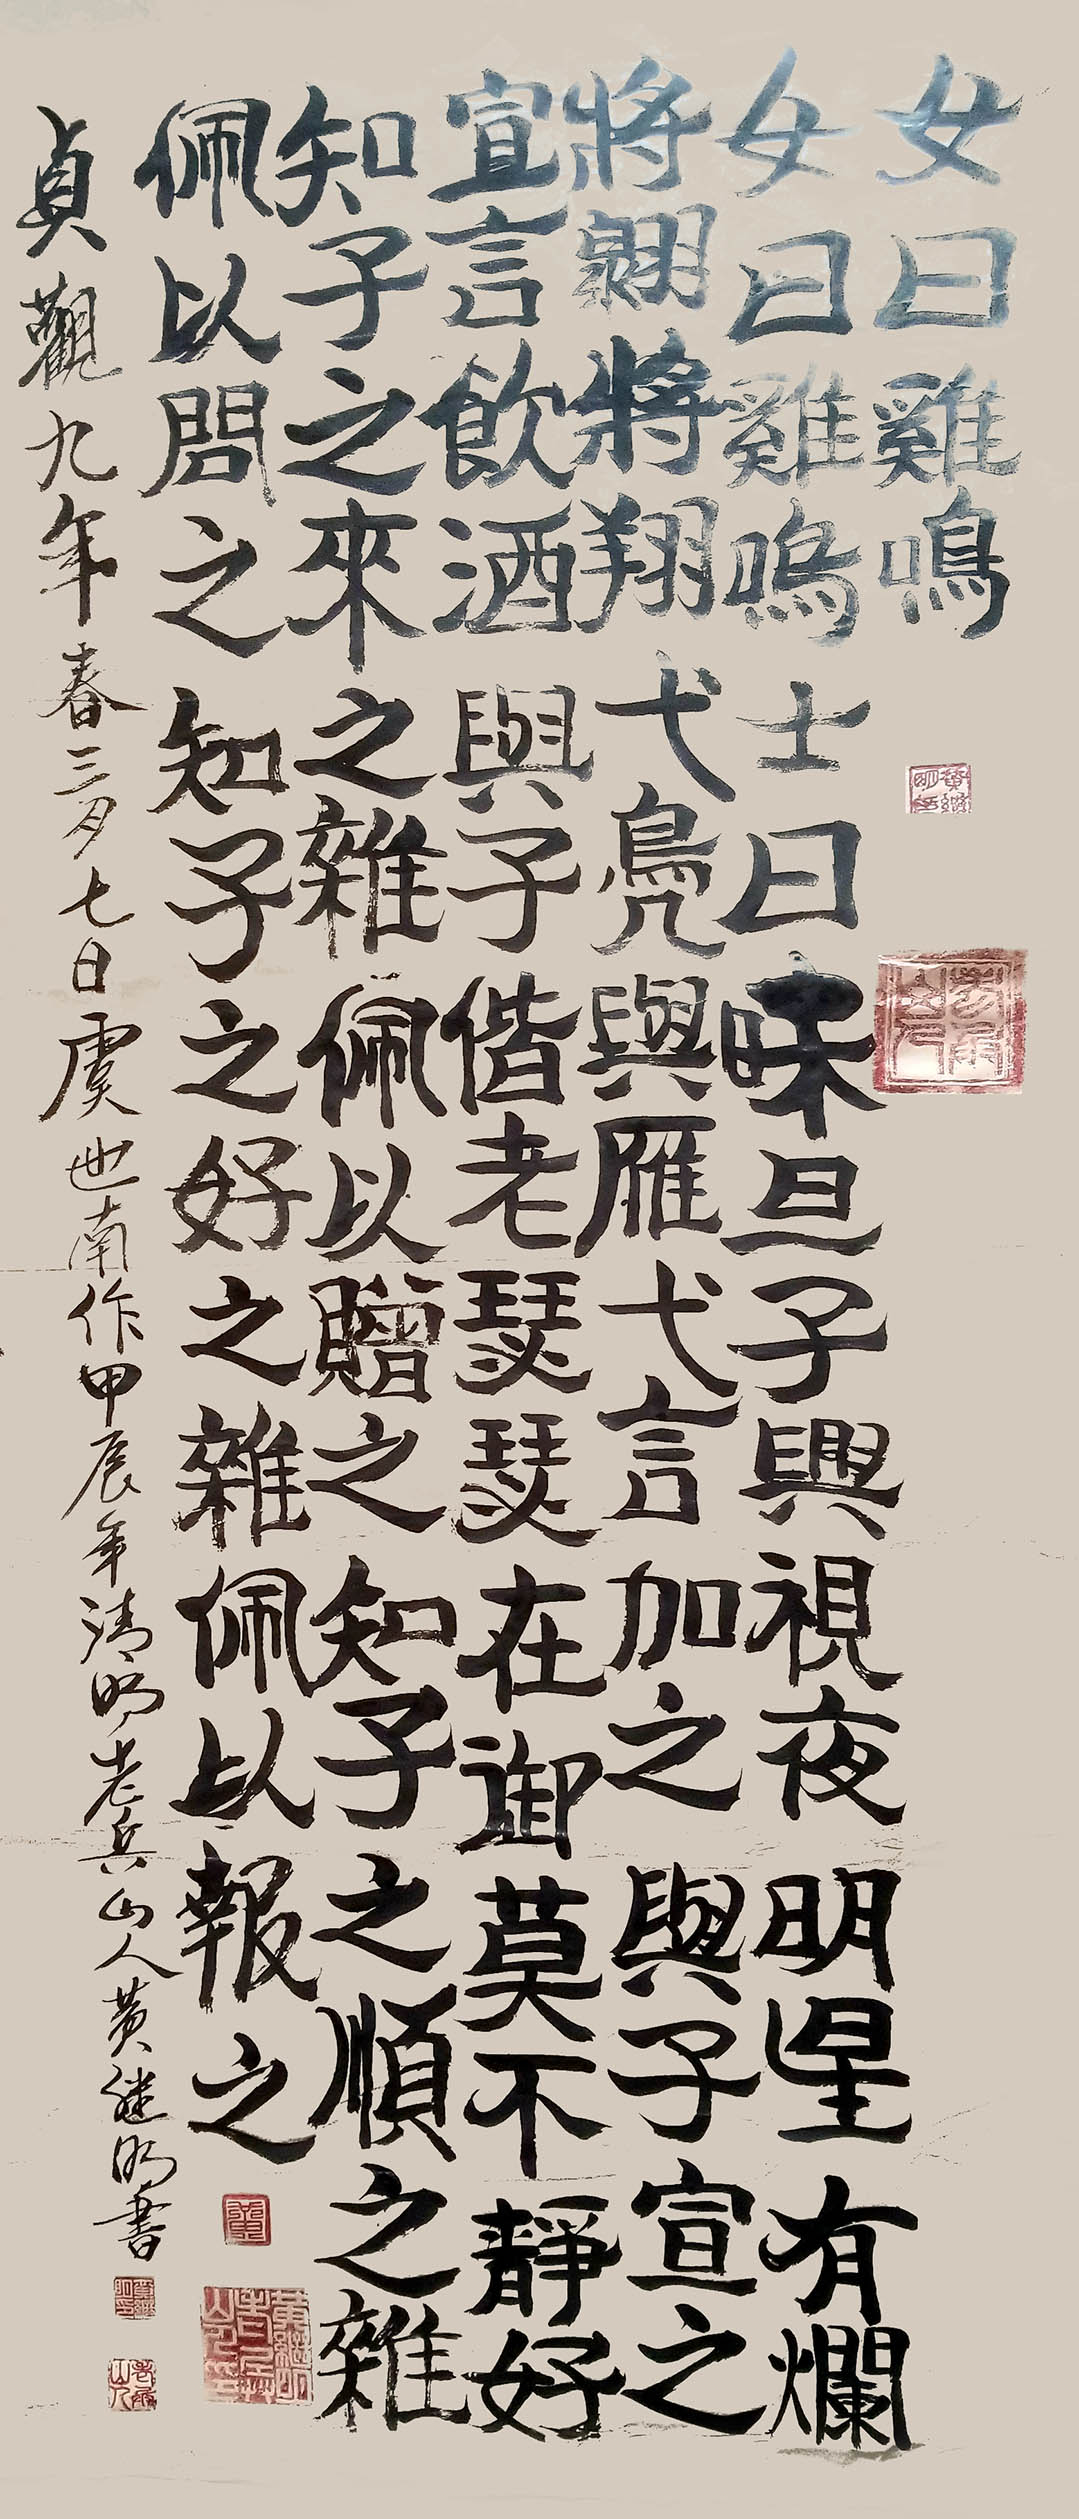 女曰雞鳴
女曰雞鳴士曰昧旦子興視夜明星有爛
將翱將翔弋鳧與雁弋言加之與子宣之
宣言飲酒與子偕老琴瑟在御莫不靜好
知子之來之雜佩以贈之知子之順之雜
佩以問之知子之好之雜佩以報之
貞觀九年春三月七日虞世南作甲辰年清明老兵山人黃繼明書